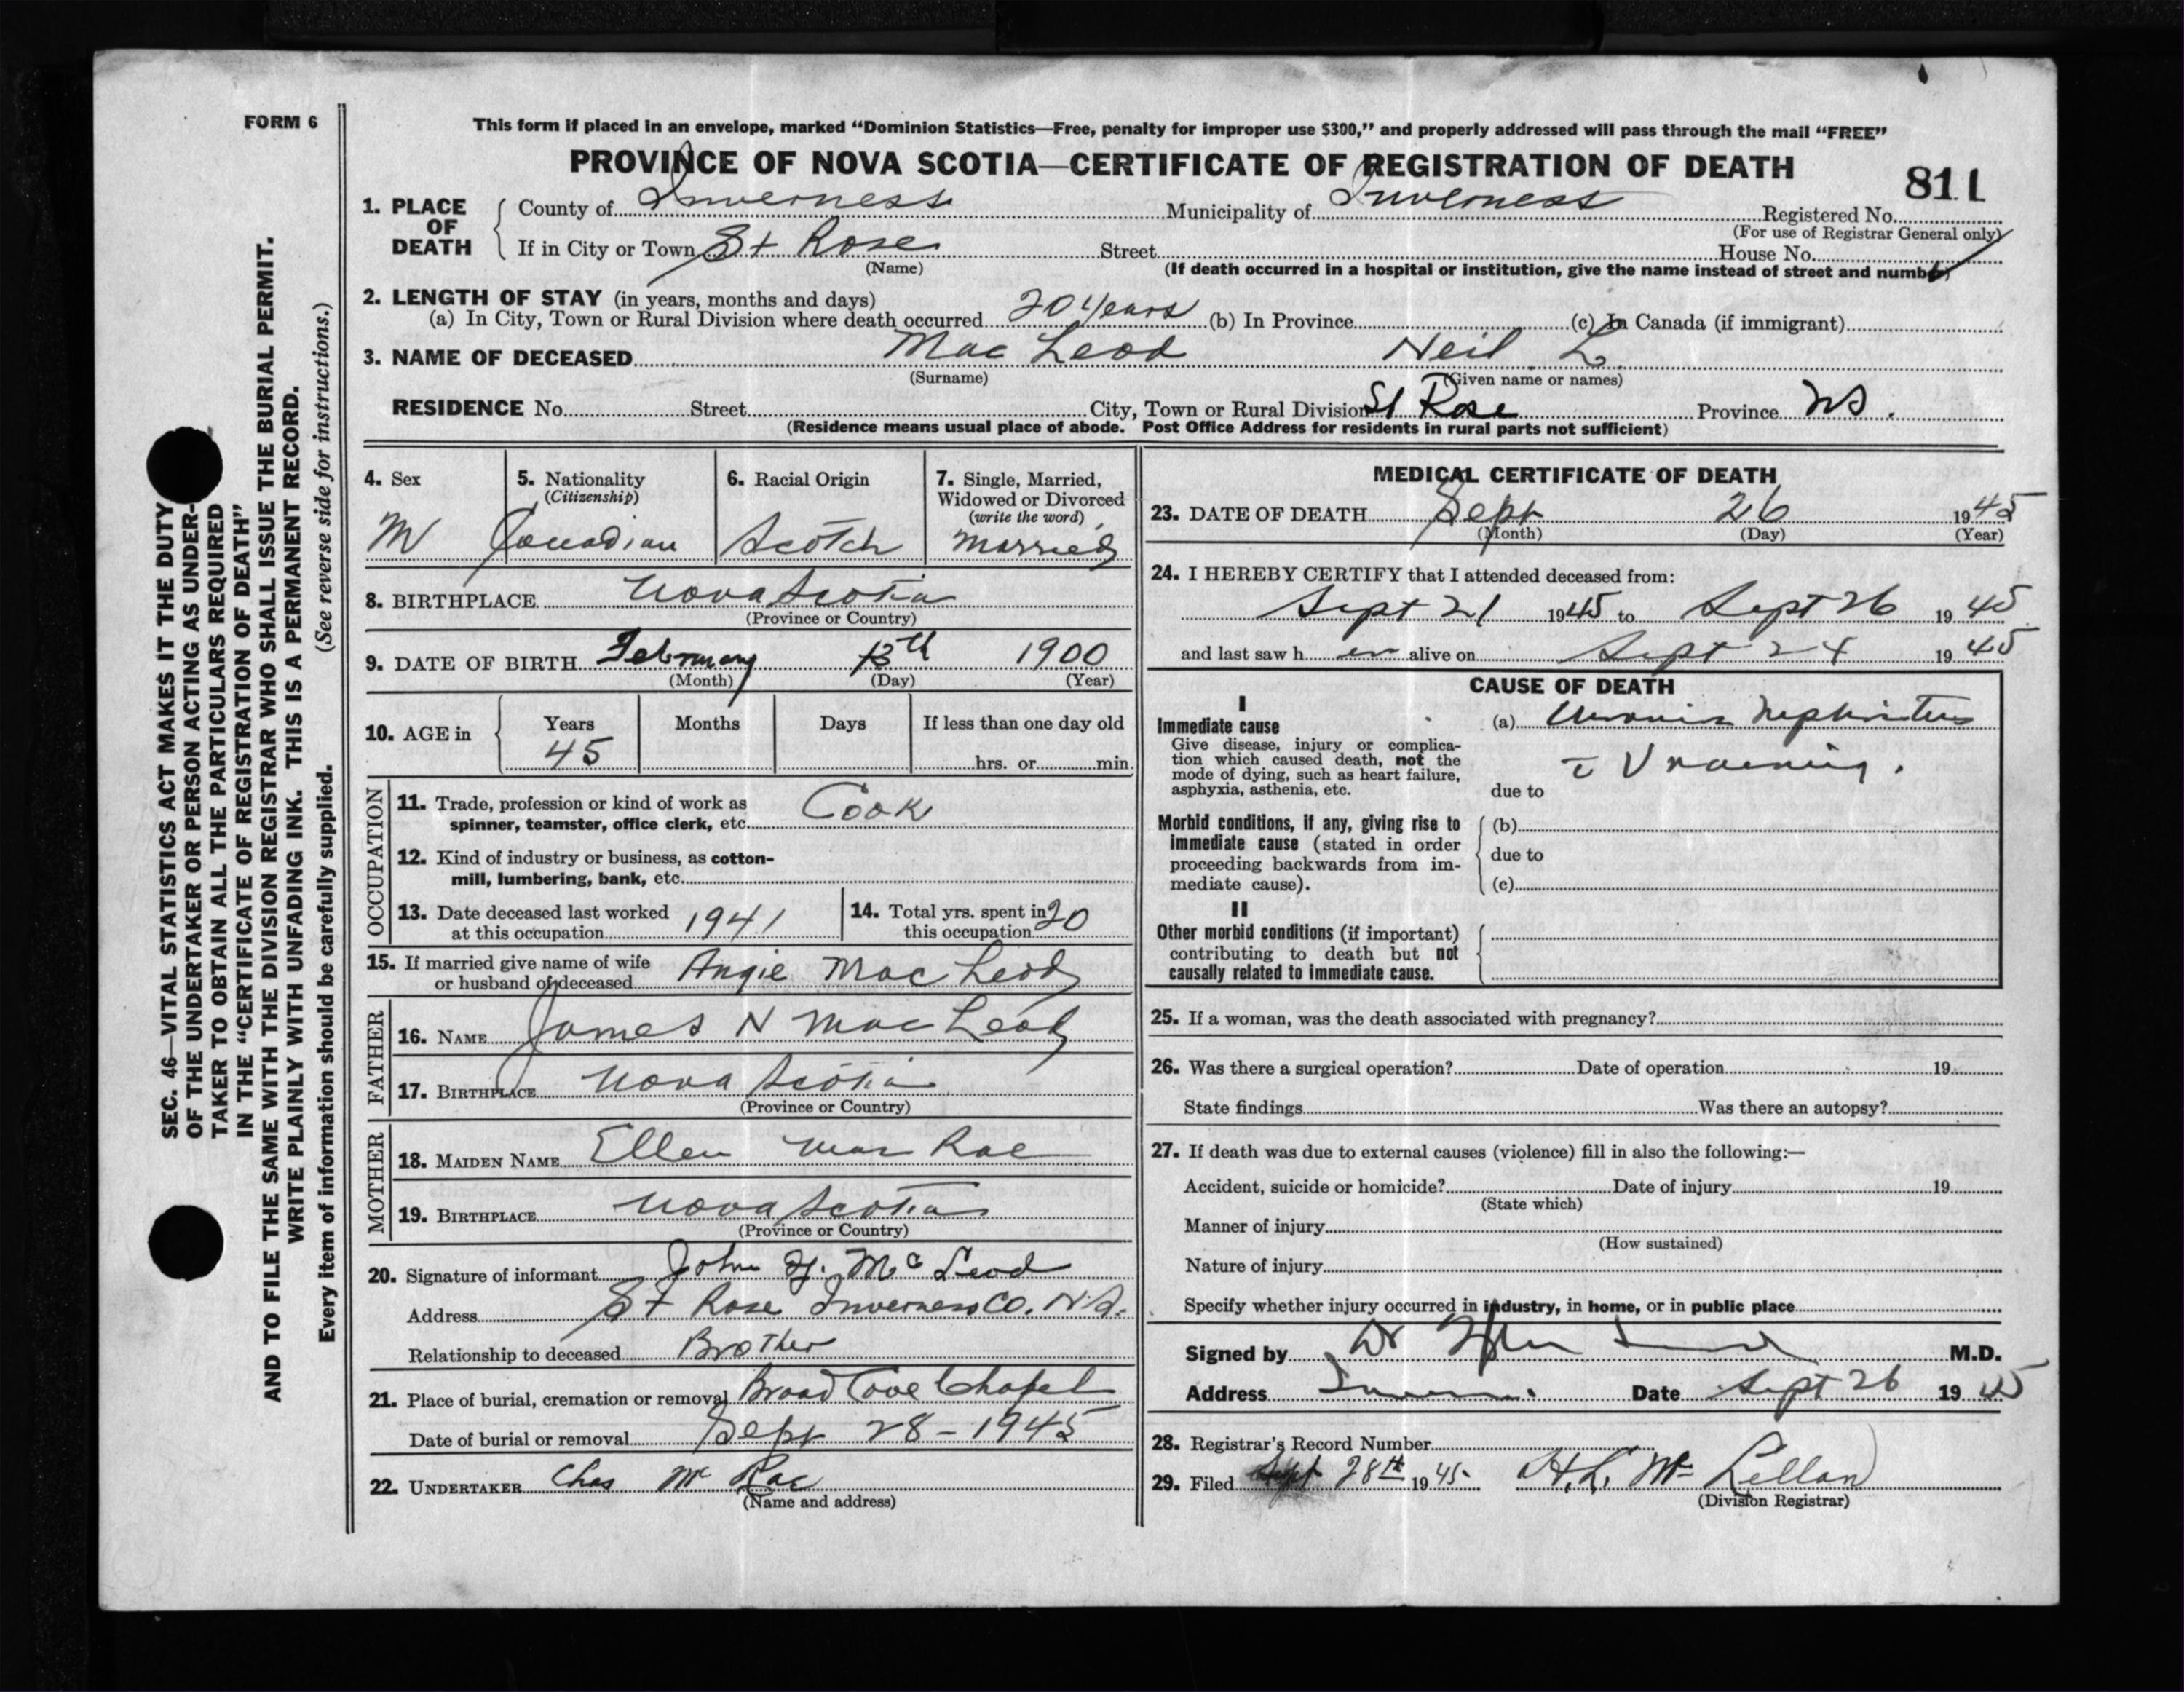 FORM 6
This form if placed in an envelope, marked “Dominion Statistics—Free, penalty for improper use $300,” and properly addressed will pass through the mail “FREE”
PROVINCE OF NOVA SCOTIA—CERTIFICATE OF REGISTRATION OF DEATH
811
1. PLACE OF DEATH
County of Inverness Municipality of Inverness Registered No.
(For use of Registrar General only)
If in City or Town St Rose Street House No.
(Name) (If death occurred in a hospital or institution, give the name instead of street and number)
2. LENGTH OF STAY (in years, months and days)
(a) In City, Town or Rural Division where death occurred 20 years (b) In Province (c) In Canada (if immigrant)
3. NAME OF DECEASED Mac Leod Neil L
(Surname) (Given name or names)
RESIDENCE No. Street City, Town or Rural Division St Rose Province NS.
(Residence means usual place of abode. Post Office Address for residents in rural parts not sufficient)
SEC. 46—VITAL STATISTICS ACT MAKES IT THE DUTY
OF THE UNDERTAKER OR PERSON ACTING AS UNDER-
TAKER TO OBTAIN ALL THE PARTICULARS REQUIRED
IN THE “CERTIFICATE OF REGISTRATION OF DEATH”
AND TO FILE THE SAME WITH THE DIVISION REGISTRAR WHO SHALL ISSUE THE BURIAL PERMIT.
WRITE PLAINLY WITH UNFADING INK. THIS IS A PERMANENT RECORD.
Every item of information should be carefully supplied. (See reverse side for instructions.)
4. Sex
M
5. Nationality
(Citizenship)
Canadian
6. Racial Origin
Scotch
7. Single, Married,
Widowed or Divorced
(write the word)
Married
8. BIRTHPLACE Nova Scotia
(Province or Country)
9. DATE OF BIRTH February 13th 1900
(Month) (Day) (Year)
10. AGE in
Years Months Days If less than one day old
45 hrs. or min.
OCCUPATION
11. Trade, profession or kind of work as
spinner, teamster, office clerk, etc. Cook
12. Kind of industry or business, as cotton-
mill, lumbering, bank, etc.
13. Date deceased last worked
at this occupation 1941
14. Total yrs. spent in
this occupation 20
15. If married give name of wife
or husband of deceased Angie Mac Leod
FATHER
16. NAME James N Mac Leod
17. BIRTHPLACE Nova Scotia
(Province or Country)
MOTHER
18. MAIDEN NAME Ellen Mac Rae
19. BIRTHPLACE Nova Scotia
(Province or Country)
20. Signature of informant John Mc Leod
Address St Rose Inverness Co. N.S.
Relationship to deceased Brother
21. Place of burial, cremation or removal Broad Cove Chapel
Date of burial or removal Sept 28 - 1945
22. UNDERTAKER Chas Mc Rae
(Name and address)
MEDICAL CERTIFICATE OF DEATH
23. DATE OF DEATH Sept 26 1945
(Month) (Day) (Year)
24. I HEREBY CERTIFY that I attended deceased from:
Sept 21 1945 to Sept 26 1945
and last saw h im alive on Sept 24 1945
CAUSE OF DEATH
I
Immediate cause
Give disease, injury or complica-
tion which caused death, not the
mode of dying, such as heart failure,
asphyxia, asthenia, etc.
(a) Chronic Nephritis
c̄ Uraemia.
due to
Morbid conditions, if any, giving rise to
immediate cause (stated in order
proceeding backwards from im-
mediate cause).
(b)
due to
(c)
II
Other morbid conditions (if important)
contributing to death but not
causally related to immediate cause.
25. If a woman, was the death associated with pregnancy?
26. Was there a surgical operation? Date of operation 19
State findings Was there an autopsy?
27. If death was due to external causes (violence) fill in also the following:—
Accident, suicide or homicide? Date of injury 19
(State which)
Manner of injury
(How sustained)
Nature of injury
Specify whether injury occurred in industry, in home, or in public place
Signed by Dr M.D.
Address Date Sept 26 1945
28. Registrar's Record Number
29. Filed Sept 28th 1945. H.L. Mc Lellan
(Division Registrar)